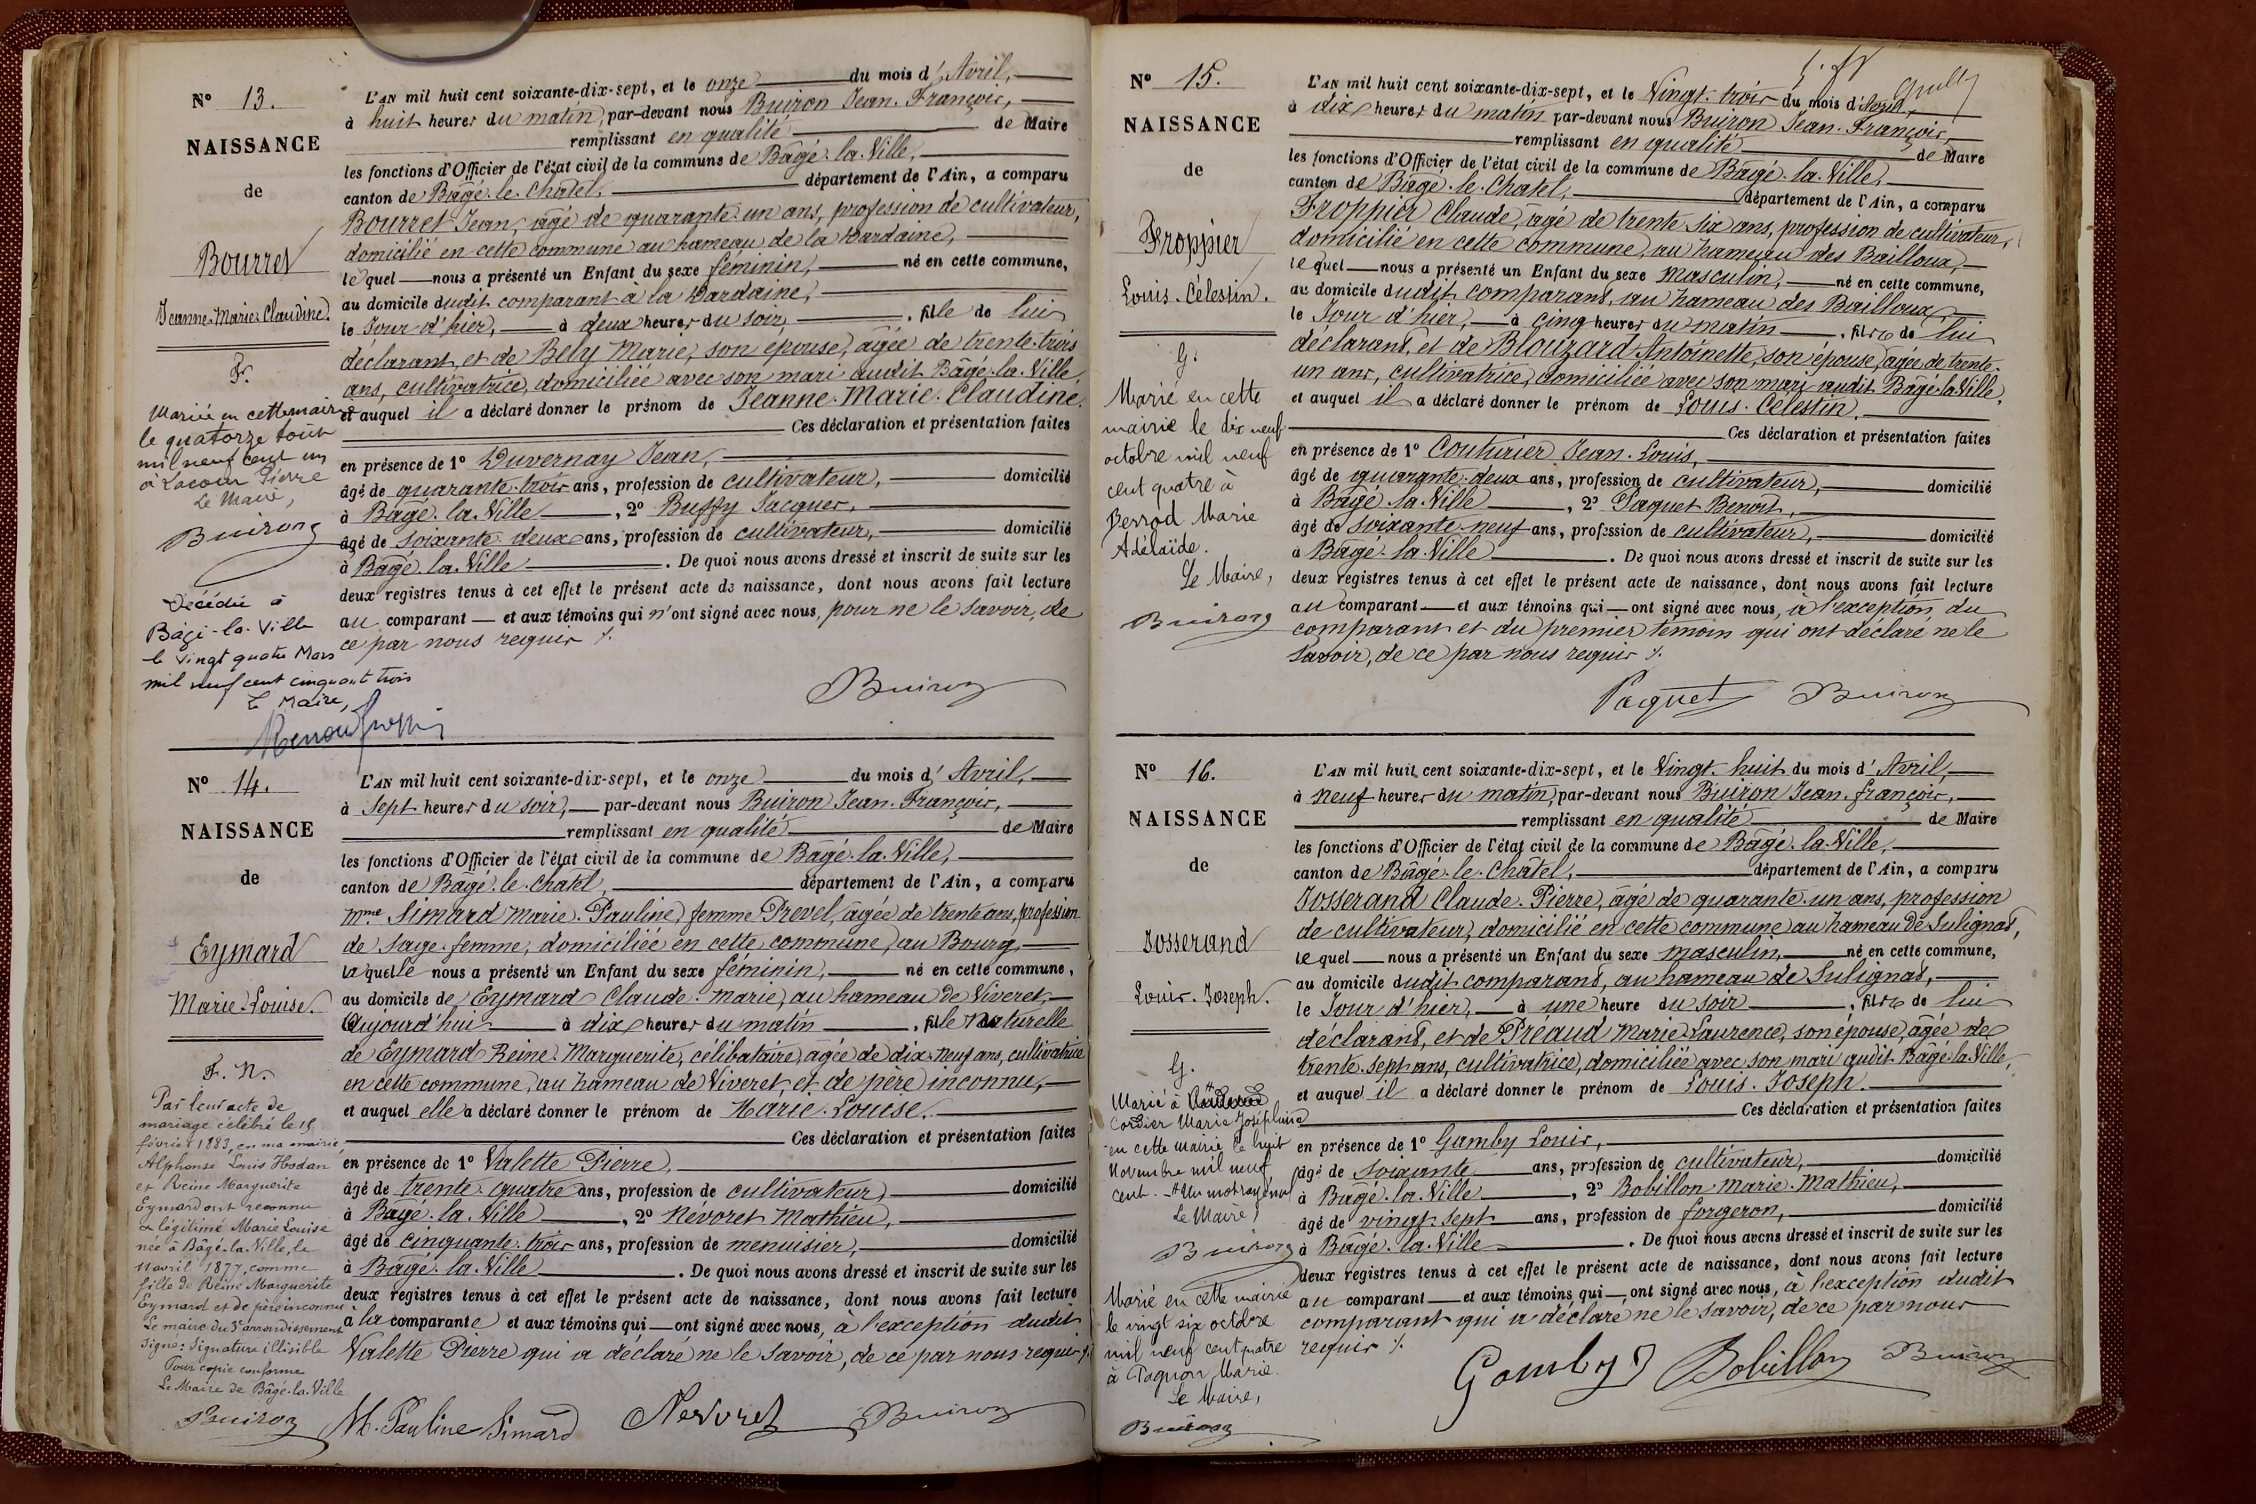 N° 13.
NAISSANCE
de
Bourret
Jeanne-Marie-Claudine.
F.
Mariée en cette mairie
le quatorze août
mil neuf cent un
à Lacour Pierre
Le Maire,
Buiron
Décédée à
Bâgé-la-Ville
le vingt quatre Mars
mil neuf cent cinquante trois
Le Maire,
L'AN mil huit cent soixante-dix-sept, et le onze du mois d'Avril,
à huit heures du matin, par-devant nous Buiron Jean-François,
remplissant en qualité de Maire
les fonctions d'Officier de l'état civil de la commune de Bâgé-la-Ville,
canton de Bâgé-le-Châtel, département de l'Ain, a comparu
Bourret Jean, âgé de quarante-un ans, profession de cultivateur,
domicilié en cette commune au hameau de la Dardaine,
lequel nous a présenté un Enfant du sexe féminin, né en cette commune,
au domicile dudit comparant à la Dardaine,
le Jour d'hier, à deux heures du soir, , fille de lui
déclarant, et de Bely Marie, son épouse, âgée de trente-trois
ans, cultivatrice, domiciliée avec son mari audit Bâgé-la-Ville,
et auquel il a déclaré donner le prénom de Jeanne-Marie-Claudine.
Ces déclaration et présentation faites
en présence de 1° Duvernay Jean,
âgé de quarante-trois ans, profession de cultivateur, domicilié
à Bâgé-la-Ville , 2° Buffy Jacques,
âgé de soixante-deux ans, profession de cultivateur, domicilié
à Bâgé-la-Ville . De quoi nous avons dressé et inscrit de suite sur les
deux registres tenus à cet effet le présent acte de naissance, dont nous avons fait lecture
au comparant et aux témoins qui n'ont signé avec nous, pour ne le savoir, de
ce par nous requis ./.
Buiron
N° 14.
NAISSANCE
de
Eymard
Marie-Louise.
F. N.
Par leur acte de
mariage célébré le 15
février 1883, en ma mairie,
Alphonse Louis Hodan
et Reine Marguerite
Eymard ont reconnu
et légitimé Marie Louise
née à Bâgé-la-Ville, le
11 avril 1877, comme
fille de Reine Marguerite
Eymard et de père inconnu.
Le maire du 3e arrondissement
Signé: Signature illisible
Pour copie conforme
Le Maire de Bâgé-la-Ville
Buiron
L'AN mil huit cent soixante-dix-sept, et le onze du mois d'Avril,
à sept heures du soir, par-devant nous Buiron Jean-François,
remplissant en qualité de Maire
les fonctions d'Officier de l'état civil de la commune de Bâgé-la-Ville,
canton de Bâgé-le-Châtel, département de l'Ain, a comparu
Mme Simard Marie-Pauline, femme Prevel, âgée de trente ans, profession
de sage-femme, domiciliée en cette commune, au Bourg,
laquelle nous a présenté un Enfant du sexe féminin, né en cette commune,
au domicile de Eymard Claude-Marie, au hameau de Viveret,
Aujourd'hui à dix heures du matin , fille naturelle
de Eymard Reine-Marguerite, célibataire, âgée de dix-neuf ans, cultivatrice
en cette commune, au hameau de Viveret et de père inconnu,
et auquel elle a déclaré donner le prénom de Marie-Louise.
Ces déclaration et présentation faites
en présence de 1° Valette Pierre,
âgé de trente-quatre ans, profession de cultivateur, domicilié
à Bâgé-la-Ville , 2° Nevoret Mathieu,
âgé de cinquante-trois ans, profession de menuisier, domicilié
à Bâgé-la-Ville . De quoi nous avons dressé et inscrit de suite sur les
deux registres tenus à cet effet le présent acte de naissance, dont nous avons fait lecture
à la comparante et aux témoins qui ont signé avec nous, à l'exception dudit
Valette Pierre qui a déclaré ne le savoir, de ce par nous requis ./.
M. Pauline Simard Nevoret Buiron
N° 15.
NAISSANCE
de
Froppier
Louis-Célestin.
G.
Marié en cette
mairie le dix neuf
octobre mil neuf
cent quatre à
Berrod Marie
Adélaïde.
Le Maire,
Buiron
L'AN mil huit cent soixante-dix-sept, et le Vingt-trois du mois d'Avril,
à dix heures du matin par-devant nous Buiron Jean-François,
remplissant en qualité de Maire
les fonctions d'Officier de l'état civil de la commune de Bâgé-la-Ville,
canton de Bâgé-le-Châtel, département de l'Ain, a comparu
Froppier Claude, âgé de trente-six ans, profession de cultivateur,
domicilié en cette commune, au hameau des Bailloux,
lequel nous a présenté un Enfant du sexe masculin, né en cette commune,
au domicile dudit comparant, au hameau des Bailloux,
le Jour d'hier, à cinq heures du matin , fils de lui
déclarant, et de Blouzard Antoinette, son épouse, âgée de trente-
un ans, cultivatrice, domiciliée avec son mari audit Bâgé-la-Ville,
et auquel il a déclaré donner le prénom de Louis-Célestin.
Ces déclaration et présentation faites
en présence de 1° Couturier Jean-Louis,
âgé de quarante-deux ans, profession de cultivateur, domicilié
à Bâgé-la-Ville , 2° Paquet Benoît,
âgé de soixante-neuf ans, profession de cultivateur, domicilié
à Bâgé-la-Ville . De quoi nous avons dressé et inscrit de suite sur les
deux registres tenus à cet effet le présent acte de naissance, dont nous avons fait lecture
au comparant et aux témoins qui ont signé avec nous, à l'exception du
comparant et du premier témoin qui ont déclaré ne le
savoir, de ce par nous requis ./.
Paquet Buiron
N° 16.
NAISSANCE
de
Josserand
Louis-Joseph.
G.
Marié à
Cordier Marie Joséphine
en cette mairie le huit
Novembre mil neuf
cent. Un mot rayé nul
Le Maire,
Buiron
Marié en cette mairie
le vingt six octobre
mil neuf cent quatre
à Pagnon Marie.
Le Maire,
Buiron
L'AN mil huit cent soixante-dix-sept, et le Vingt-huit du mois d'Avril,
à neuf heures du matin, par-devant nous Buiron Jean-François,
remplissant en qualité de Maire
les fonctions d'Officier de l'état civil de la commune de Bâgé-la-Ville,
canton de Bâgé-le-Châtel, département de l'Ain, a comparu
Josserand Claude-Pierre, âgé de quarante-un ans, profession
de cultivateur, domicilié en cette commune au hameau de Sulignat,
lequel nous a présenté un Enfant du sexe masculin, né en cette commune,
au domicile dudit comparant, au hameau de Sulignat,
le Jour d'hier, à une heure du soir , fils de lui
déclarant, et de Préaud Marie-Laurence, son épouse, âgée de
trente-sept ans, cultivatrice, domiciliée avec son mari audit Bâgé-la-Ville,
et auquel il a déclaré donner le prénom de Louis-Joseph.
Ces déclaration et présentation faites
en présence de 1° Gamby Louis,
âgé de soixante ans, profession de cultivateur, domicilié
à Bâgé-la-Ville , 2° Bobillon Marie-Mathieu,
âgé de vingt-sept ans, profession de forgeron, domicilié
à Bâgé-la-Ville . De quoi nous avons dressé et inscrit de suite sur les
deux registres tenus à cet effet le présent acte de naissance, dont nous avons fait lecture
au comparant et aux témoins qui ont signé avec nous, à l'exception dudit
comparant qui a déclaré ne le savoir, de ce par nous
requis ./.
Gamby Bobillon Buiron